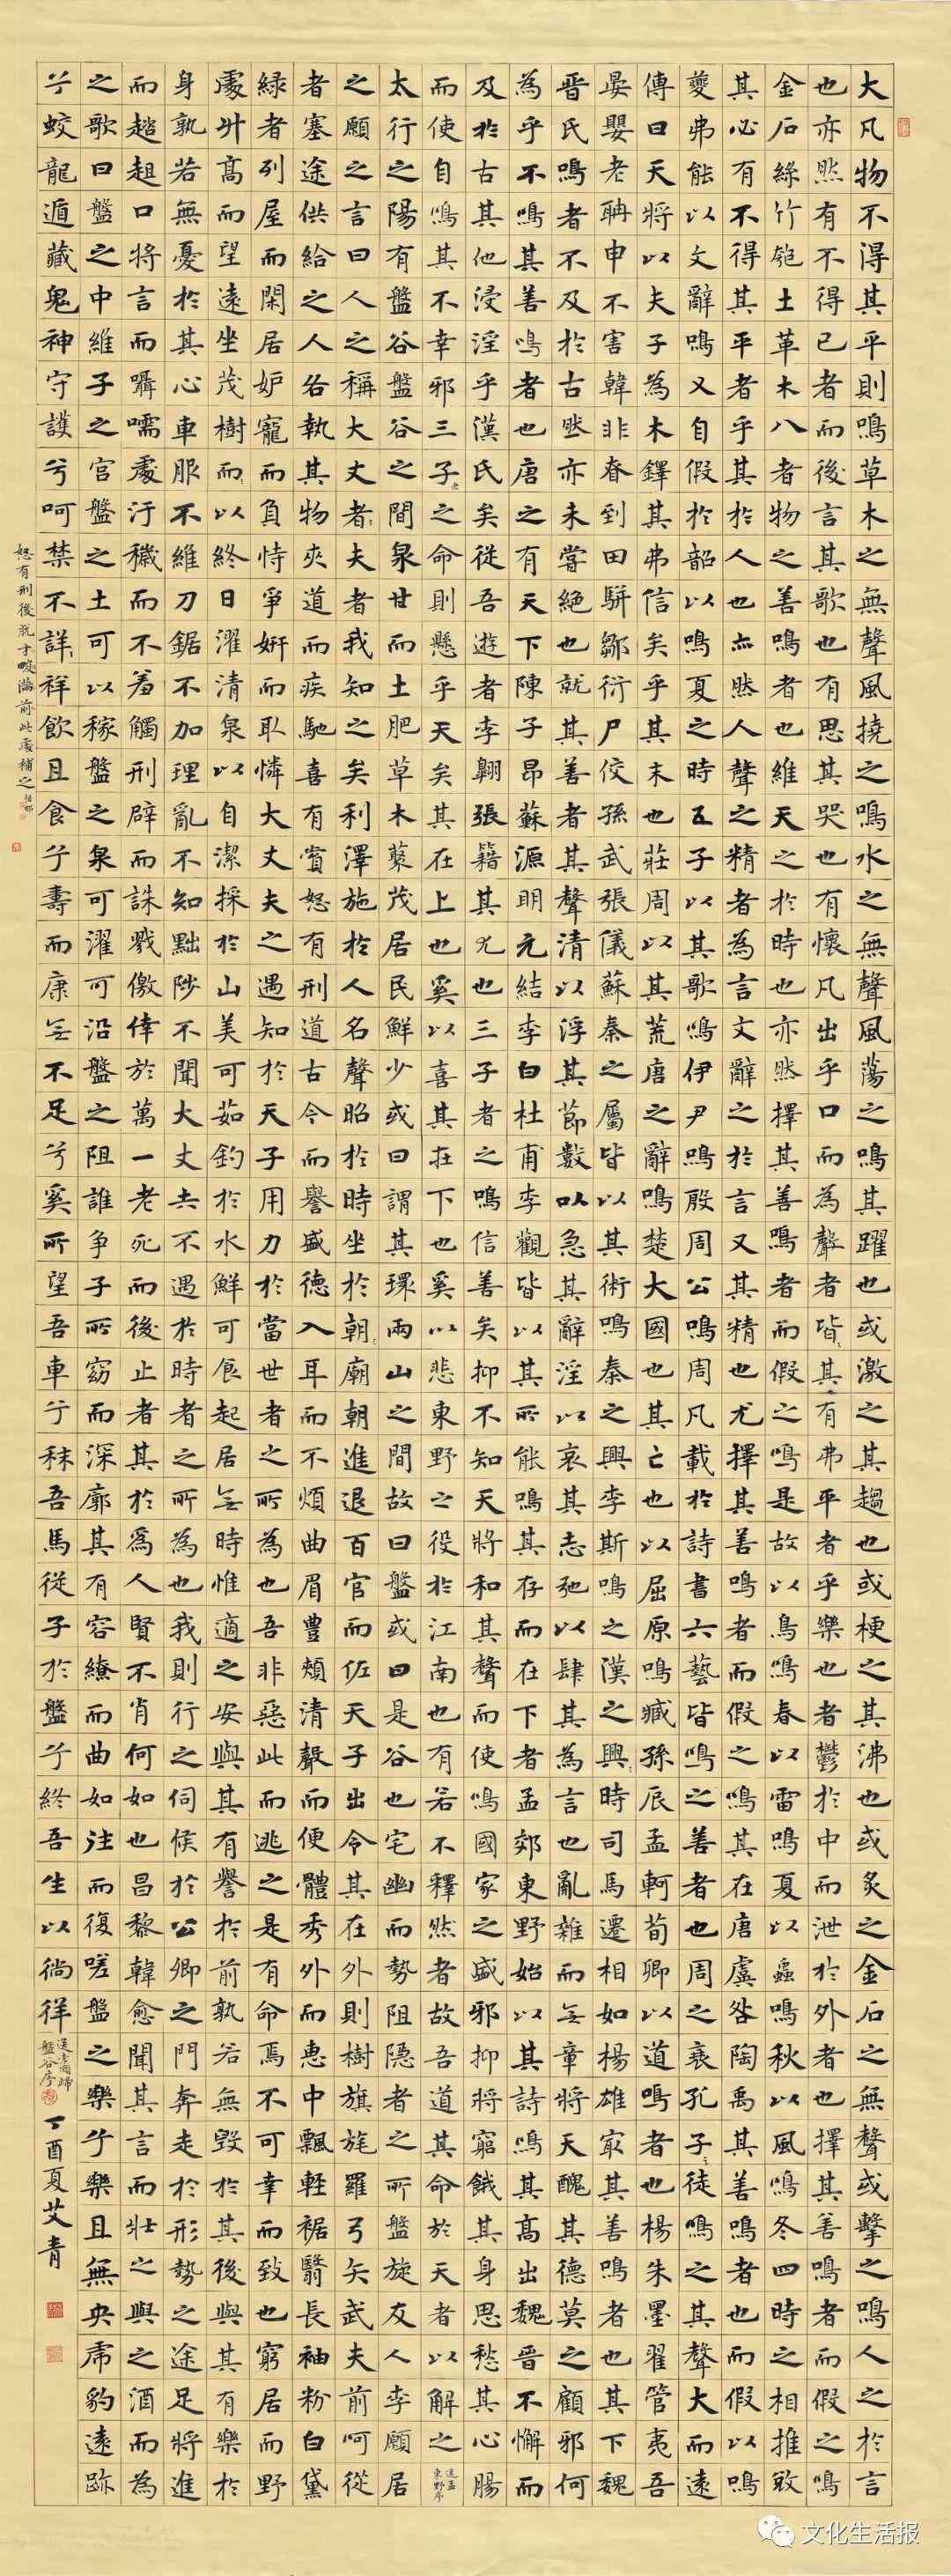 大凡物不得其平則鳴草木之無聲風撓之鳴水之無聲風蕩之鳴其躍也或激之其趨也或梗之其沸也或炙之金石之無聲或擊之鳴人之於言
也亦然有不得已者而後言其歌也有思其哭也有懷凡出乎口而為聲者皆其有弗平者乎樂也者鬱於中而泄於外者也擇其善鳴者而假之鳴
金石絲竹匏土革木八者物之善鳴者也維天之於時也亦然擇其善鳴者而假之鳴是故以鳥鳴春以雷鳴夏以蟲鳴秋以風鳴冬四時之相推敓
其必有不得其平者乎其於人也亦然人聲之精者為言文辭之於言又其精也尤擇其善鳴者而假之鳴其在唐虞咎陶禹其善鳴者也而假以鳴
夔弗能以文辭鳴又自假於韶以鳴夏之時五子以其歌鳴伊尹鳴殷周公鳴周凡載於詩書六藝皆鳴之善者也周之衰孔子徒鳴之其聲大而遠
傳曰天將以夫子為木鐸其弗信矣乎其末也莊周以其荒唐之辭鳴楚大國也其亡也以屈原鳴臧孫辰孟軻荀卿以道鳴者也楊朱墨翟管夷吾
晏嬰老聃申不害韓非眘到田駢鄒衍尸佼孫武張儀蘇秦之屬皆以其術鳴秦之興李斯鳴之漢之興時司馬遷相如楊雄㝡其善鳴者也其下魏
晉氏鳴者不及於古然亦未嘗絕也就其善者其聲清以浮其節數以急其辭淫以哀其志弛以肆其為言也亂雜而無章將天醜其德莫之顧邪何
為乎不鳴其善鳴者也唐之有天下陳子昂蘇源明元結李白杜甫李觀皆以其所能鳴其存而在下者孟郊東野始以其詩鳴其高出魏晉不懈而
及於古其他浸淫乎漢氏矣從吾遊者李翱張籍其尤也三子者之鳴信善矣抑不知天將和其聲而使鳴國家之盛邪抑將窮餓其身思愁其心腸
而使自鳴其不幸邪三子之命則懸乎天矣其在上也奚以喜其在下也奚以悲東野之役於江南也有若不釋然者故吾道其命於天者以解之
送孟東野序
太行之陽有盤谷盤谷之間泉甘而土肥草木藂茂居民鮮少或曰謂其環兩山之間故曰盤或曰是谷也宅幽而勢阻隱者之所盤旋友人李願居
之願之言曰人之稱大丈者夫者我知之矣利澤施於人名聲昭於時坐於朝廟朝進退百官而佐天子出令其在外則樹旗旄羅弓矢武夫前呵從
者塞途供給之人各執其物夾道而疾馳喜有賞怒有刑道古今而譽盛德入耳而不煩曲眉豐頰清聲而便體秀外而惠中飄輕裾翳長袖粉白黛
緑者列屋而閑居妒寵而負恃爭妍而取憐大丈夫之遇知於天子用力於當世者之所為也吾非惡此而逃之是有命焉不可幸而致也窮居而野
處升高而望遠坐茂樹而以終日濯清泉以自潔採於山美可茹釣於水鮮可食起居無時惟適之安與其有譽於前孰若無毀於其後與其有樂於
身孰若無憂於其心車服不維刀鋸不加理亂不知黜陟不聞大丈夫不遇於時者之所為也我則行之伺候於公卿之門奔走於形勢之途足將進
而趦趄口將言而囁嚅處汙穢而不羞觸刑辟而誅戮儌倖於萬一老死而後止者其於為人賢不肖何如也昌黎韓愈聞其言而壯之與之酒而為
之歌曰盤之中維子之宮盤之土可以稼盤之泉可濯可沿盤之阻誰爭子所窈而深廓其有容繚而曲如往而復嗟盤之樂兮樂且無央虎豹遠跡
兮蛟龍遁藏鬼神守護兮呵禁不詳祥飲且食兮壽而康無不足兮奚所望吾車兮秣吾馬從子於盤兮終吾生以徜徉
送李願歸盤谷序
丁酉夏艾青
怒有刑後就才畯滿前此處補之
文化生活报